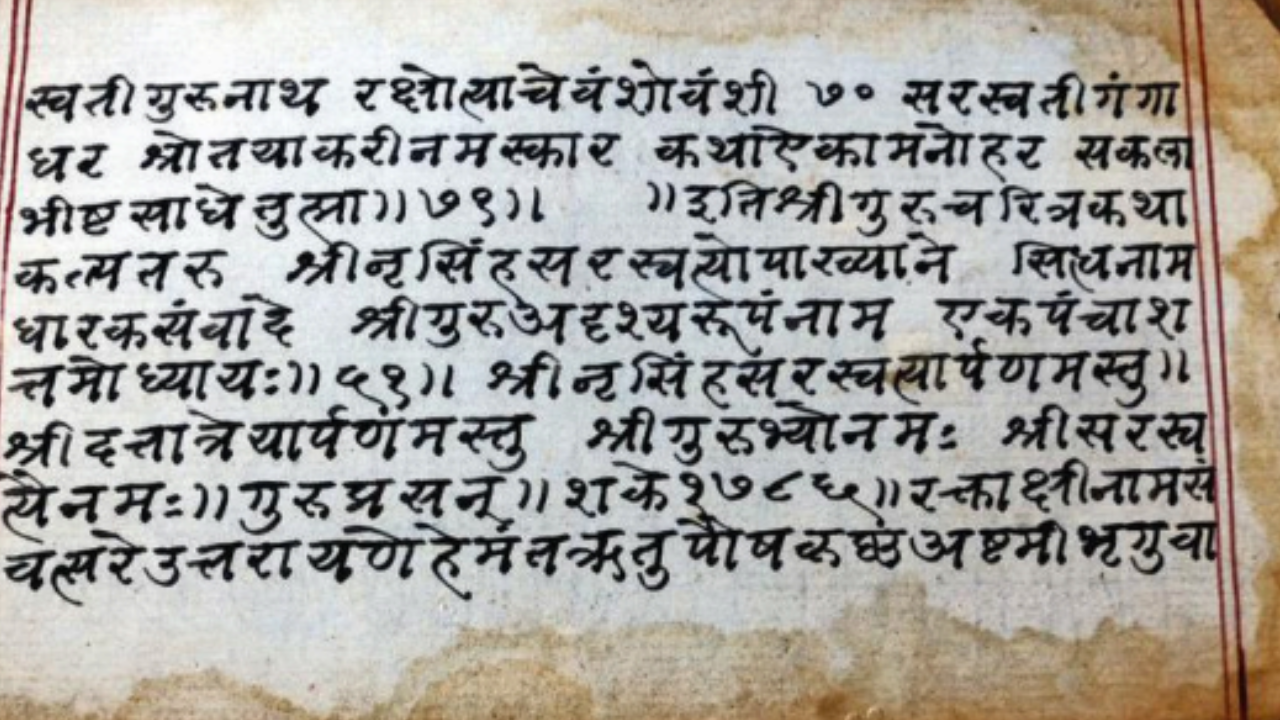 स्वती गुरुनाथ रक्षोत्याचे वंशोवंशी ७० सरस्वती गंगा
धर श्रोतयाकरी नमस्कार कथाऐका मनोहर सकला
भीष्ट साधे तुत्मा॥७१॥ ॥इति श्री गुरुचरित्रकथा
कल्पतरु श्री नृसिंहसरस्वत्योपाख्याने सित्धनाम
धारकसंवादे श्रीगुरुअदृश्यरूपंनाम एकपंचाश
त्तमोध्यायः॥५१॥ श्री नृसिंहसरस्वत्यार्पणमस्तु॥
श्री दत्तात्रेयार्पणंमस्तु श्री गुरुभ्योनमः श्री सरस्व
त्यैनमः॥गुरुप्रसन्॥शके १७८६॥रक्ताक्षीनामसं
वत्सरे उत्तरायणे हेमंतऋतु पौष अष्टमी भृगुवा